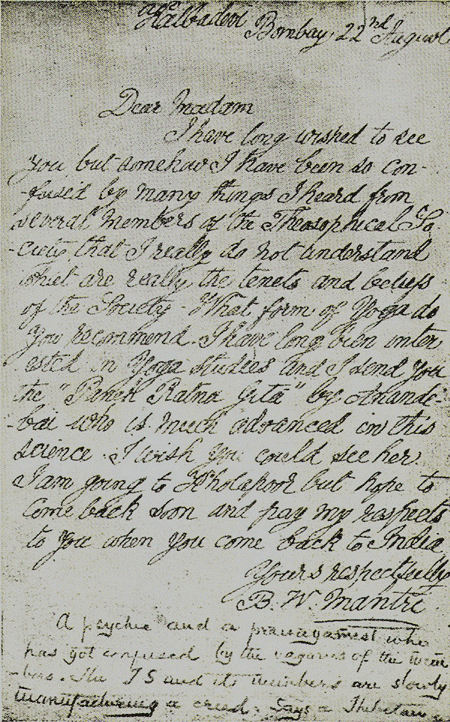 Kalbadevi Bombay. 22nd August
Dear Madam
I have long wished to see
you but somehow I have been so con
-fused by many things I heard from
several members of the Theosophical So,
-ciety that I really do not understand
what are really the tenets and beliefs
of the Society. What form of Yoga do
you recommend. I have long been inter
ested in Yoga studies and I send you
the "Panch Ratna Gita" by Anande
-bai who is much advanced in this
science. I wish you could see her.
I am going to Kholapoor but hope to
come back soon and pay my respects
to you when you come back to India
Yours respectfully
B. W. Mantri
A psychic and a pranayamist who
has got confused by the vagaries of the mem
-bers. The TS and its members are slowly
manufacturing a creed. Says a Thibetan